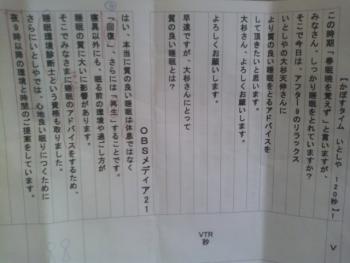 【かぼすタイム いとしや -20秒】1
この時期「春眠暁を覚えず」と言いますが、
みなさん、しっかり睡眠をとれていますか?
そこで今日は、アフター9のリラックス
いとしやの大杉天伸さんに
より質の良い睡眠をとるアドバイスを
して頂きたいと思います。
大杉さん、よろしくお願いします。
よろしくお願いします。
早速ですが、大杉さんにとって
質の良い睡眠とは?
V
OBSメディア21
はい、本当に質の良い睡眠は休息ではなく
「回復」、さらには「再生」することです。
寝具以外にも、眠る前の環境や過ごし方が
睡眠の質に大いに影響があります。
そこでみなさまに睡眠のアドバイスをするため、
睡眠環境診断士という資格も取りました。
さらにいとしやでは、心地良い眠りにつくために
夜9時以降の環境と時間のご提案をしています。
VTR
秒